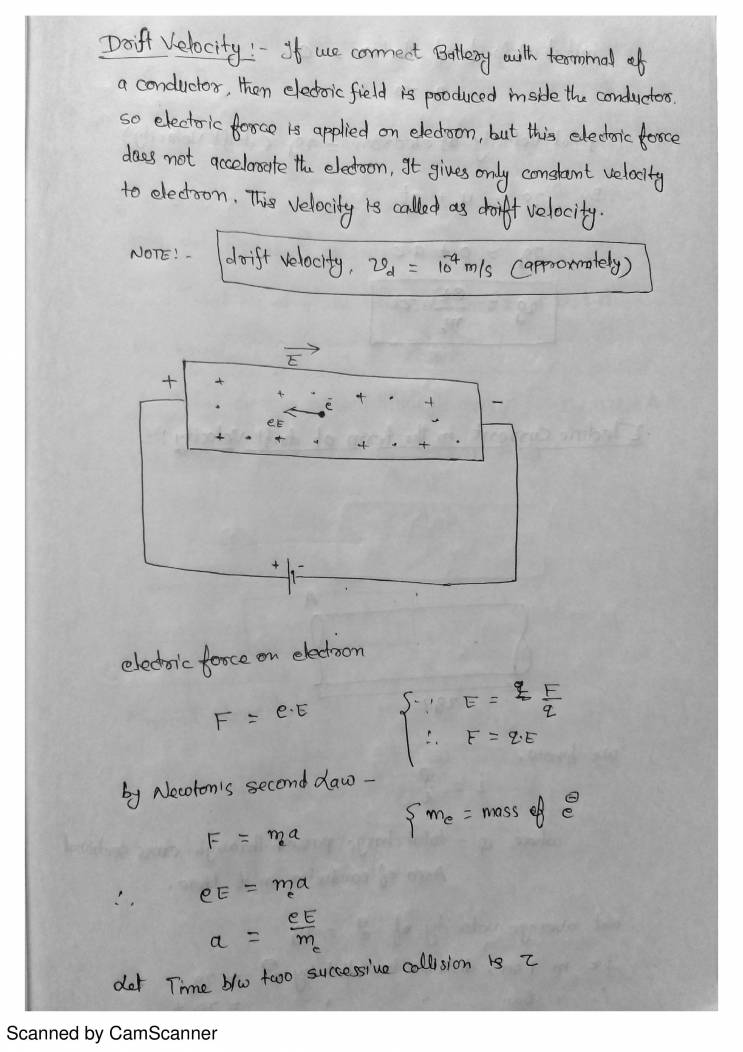 Drift Velocity :- If we connect Battery with terminal of
a conductor, then electric field is produced inside the conductor.
so electric force is applied on electron, but this electric force
does not accelarate the electron, It gives only constant velocity
to electron. This velocity is called as drift velocity.
NOTE :- drift velocity, v_d = 10^-4 m/s (approxmately)
E
+ -
e-
eE
+ -
electric force on electron
F = e·E { ∵ E = F/q
∴ F = q·E
by Newton's second Law –
F = m_e a { m_e = mass of e⊖
∴ eE = m_e a
a = eE/m_e
Let Time b/w two successive collision is τ
Scanned by CamScanner